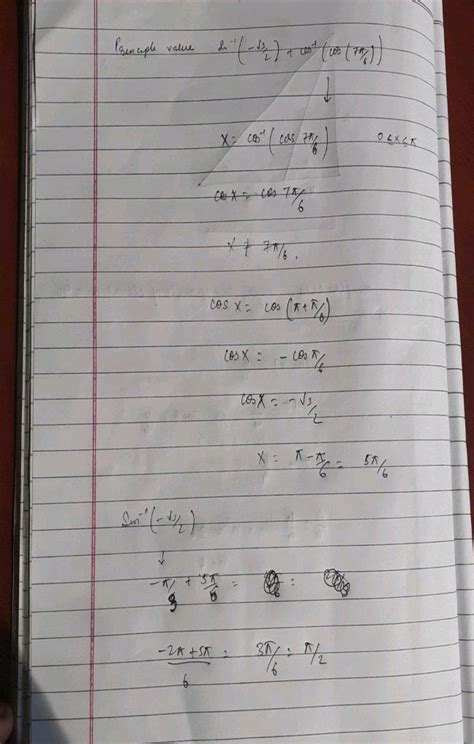 Principle value Sin⁻¹(-√3/2) + cos⁻¹(cos(7π/6))
↓
x = cos⁻¹(cos 7π/6) 0≤x≤π
cos x = cos 7π/6
x ≠ 7π/6.
cos x = cos(π+π/6)
cos x = -cos π/6
cos x = -√3/2
x = π - π/6 = 5π/6
Sin⁻¹(-√3/2)
↓
-π/3 + 5π/6 = =
-2π+5π/6 = 3π/6 = π/2